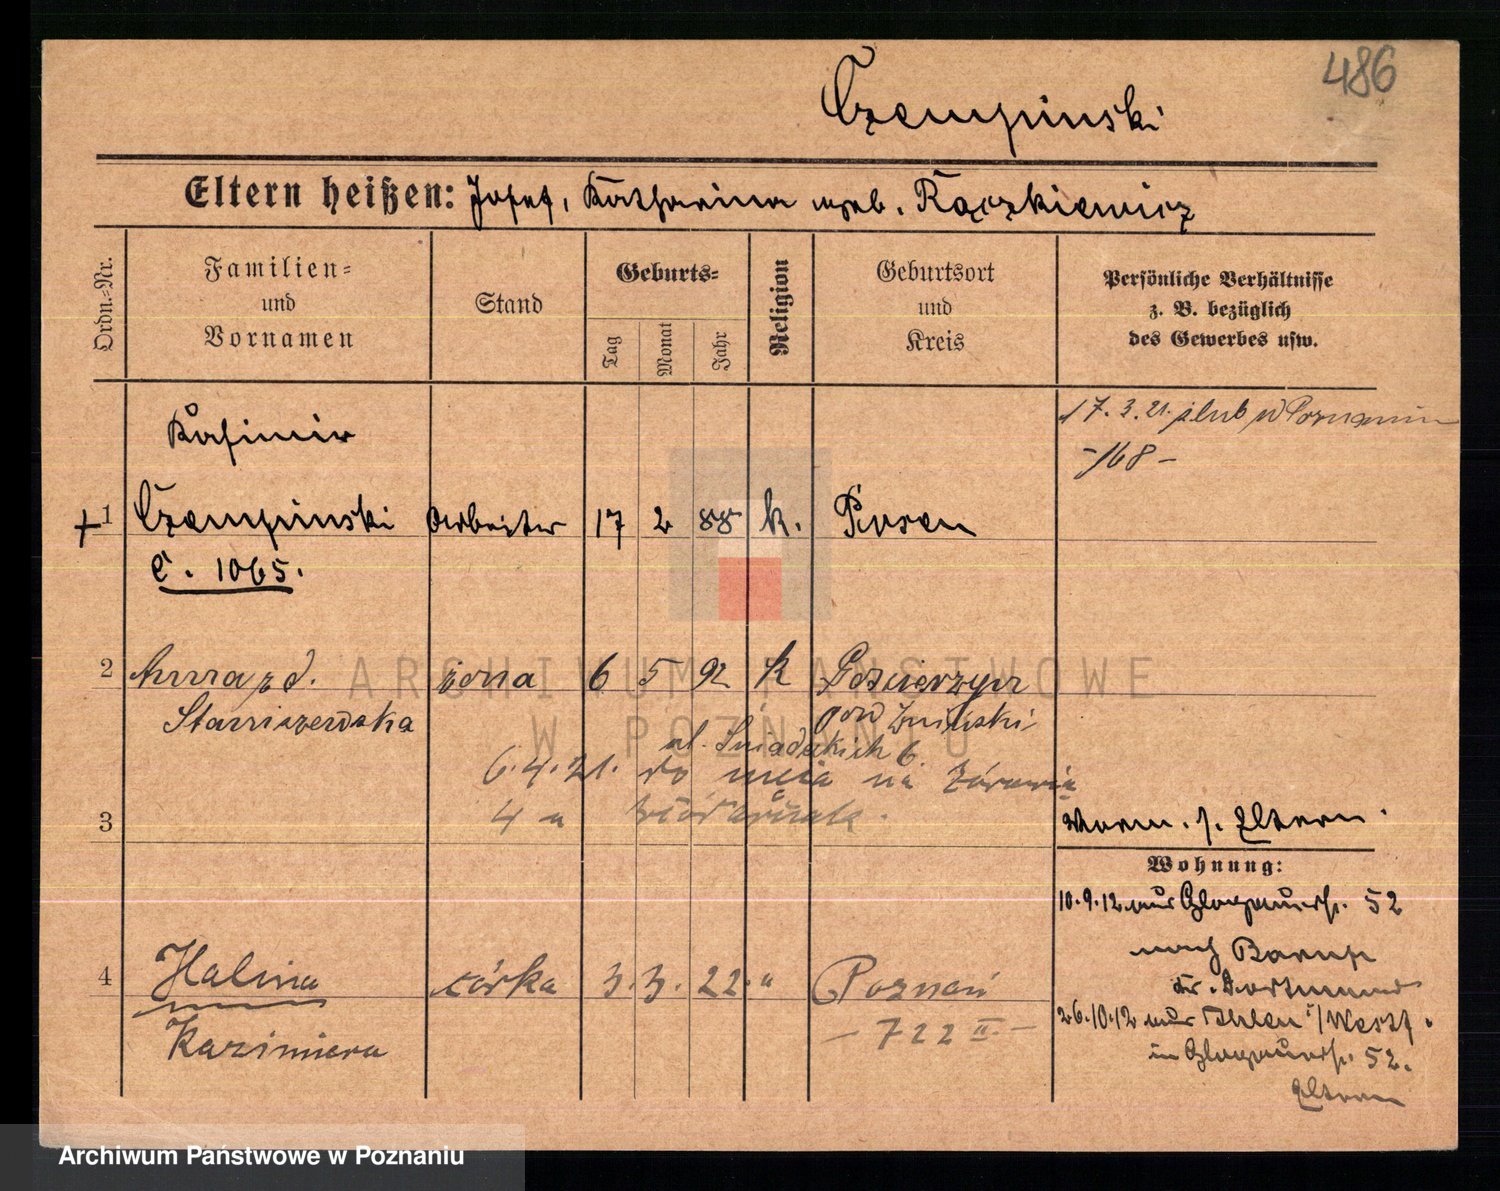 486
Czempinski
Eltern heißen: Josef, Katharina geb. Rączkiewicz
Ordn.-Nr.
Familien-
und
Vornamen
Stand
Geburts-
Tag
Monat
Jahr
Religion
Geburtsort
und
Kreis
Persönliche Verhältnisse
z. B. bezüglich
des Gewerbes usw.
17. 3. 21. ślub w Poznaniu
-168-
Kasimir
1 Czempinski Arbeiter 17 2 88 k. Posen
C. 1065.
2 Anna z d. żona 6 5 92 k
Staniszewska
pow Żniński
ul. Śniadeckich 6
6.4.21. do męża na
3 4 a
Eltern.
Wohnung:
10.9.12 aus Glogauerstr. 52
nach Barup
Kr. Dortmund
26.10.12 aus Ahlen i/Westf.
in Glogauerstr. 52.
Eltern
4 Halina córka 3. 3. 22. " Poznań
Kazimiera
- 722 II. -
ARCHIWUM PAŃSTWOWE
W POZNANIU
Archiwum Państwowe w Poznaniu